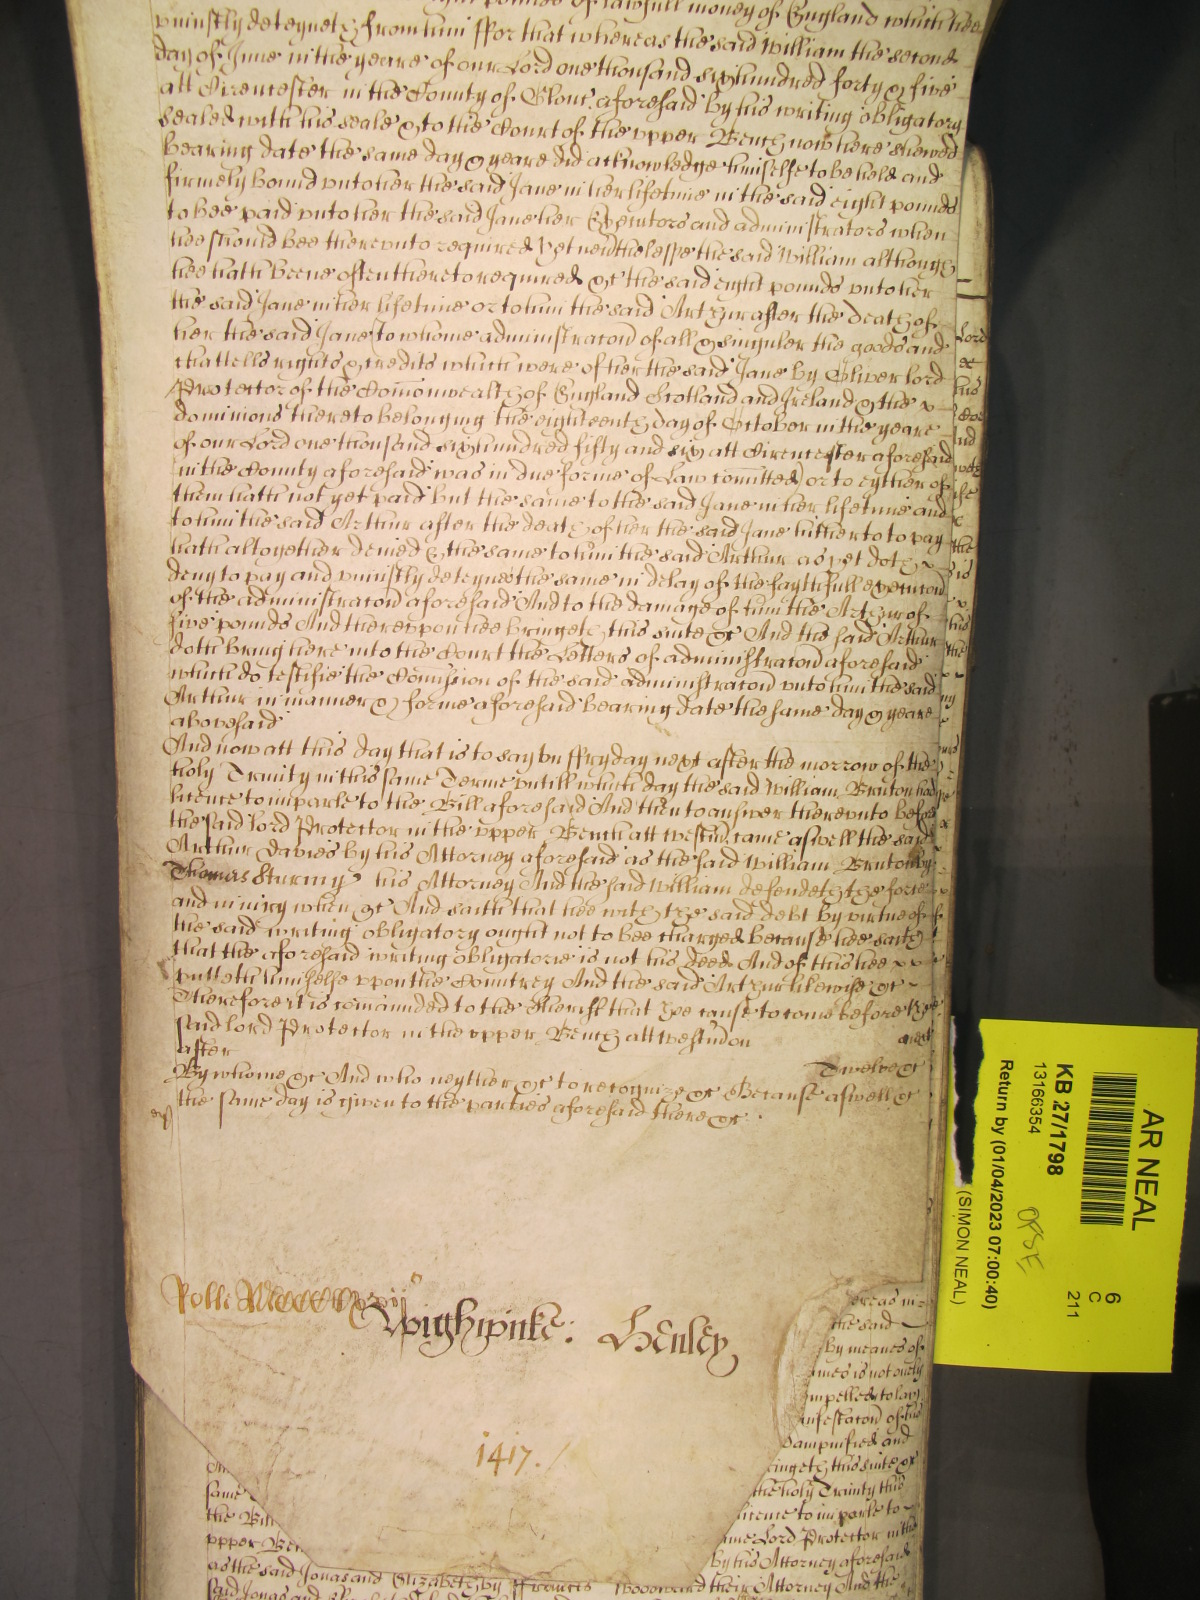 pounds of lawfull money of England which hee
uniustly deteyneth from him ffor that whereas the said William the second
day of June in the yeare of our Lord one thousand sixhundred forty & five
att Cirencester in the County of Glouc. aforesaid by his writing obligatory
sealed with his seale & to the Court of the upper Bench now here shewed
bearing date the same day & yeare did acknowledge himselfe to be held and
firmely bound unto her the said Jane in her lifetime in the said eight pounds
to bee paid unto her the said Jane her Executors and administrators when
hee should bee thereunto required Yet neverthelesse the said William although
hee hath beene often thereto required &c the said eight pounds unto her
the said Jane in her lifetime or to him the said Arthur after the death of
her the said Jane to whome administracon of all & singuler the goods and
chattells rights & credits which were of her the said Jane by Oliver lord
Protector of the Comonwealth of England Scotland and Ireland & the
dominions thereto belonging the eighteenth day of October in the yeare
of our Lord one thousand sixhundred fifty and six att Cirencester aforesaid
in the County aforesaid was in due forme of Law comitted or to eyther of
them hath not yet paid but the same to the said Jane in her lifetime and
to him the said Arthur after the death of her the said Jane hitherto to pay
hath altogether denied & the same to him the said Arthur as yet doth
deny to pay and uniustly deteyneth the same in delay of the faythfull execucon
of the administracon aforesaid And to the damage of him the Arthur of
five pounds And thereupon hee bringeth this suite &c And the said Arthur
doth bring here into the Court the Letters of administracon aforesaid
which do testifie the Comission of the said administracon unto him the said
Arthur in manner & forme aforesaid bearing date the same day & yeare
abovesaid
And now att this day that is to say on ffryday next after the morrow of the
holy Trinity in this same Terme untill which day the said William Bruton had
licence to imparle to the Bill aforesaid And then to answer thereunto before
the said lord Protector in the upper Bench att Westm. came aswell the said
Arthur Davies by his Attorney aforesaid as the said William Bruton by
Thomas Sturmy his Attorney And the said William defendeth the force
and iniury when &c And saith that hee with the said debt by virtue of
the said writing obligatory ought not to bee charged because hee saith
that the aforesaid writing obligatorie is not his deed And of this hee
putteth himselfe upon the Countrey And the said Arthur likewise &c
Therefore it is comanded to the Sheriff that hee cause to come before the
said lord Protector in the upper Bench att Westm on next
after Twelve &c
By whome &c And who neyther &c to recognize &c Because aswell &c
the same day is given to the parties aforesaid there &c
Wighwicke: Henley
1417.
the said
by meanes of
is not onely
to law
and
this suite &c
the holy Trinity this
licence to imparle to
same
the Bill
Lord Protector in the
upper Ben
by his Attorney aforesaid
as the said Jonas and Elizabeth by ffrancis Woodward their Attorney And the
said Jonas and
AR NEAL
6
C
211
KB 27/1798
13166354
Return by (01/04/2023 07:00:40)
(SIMON NEAL)